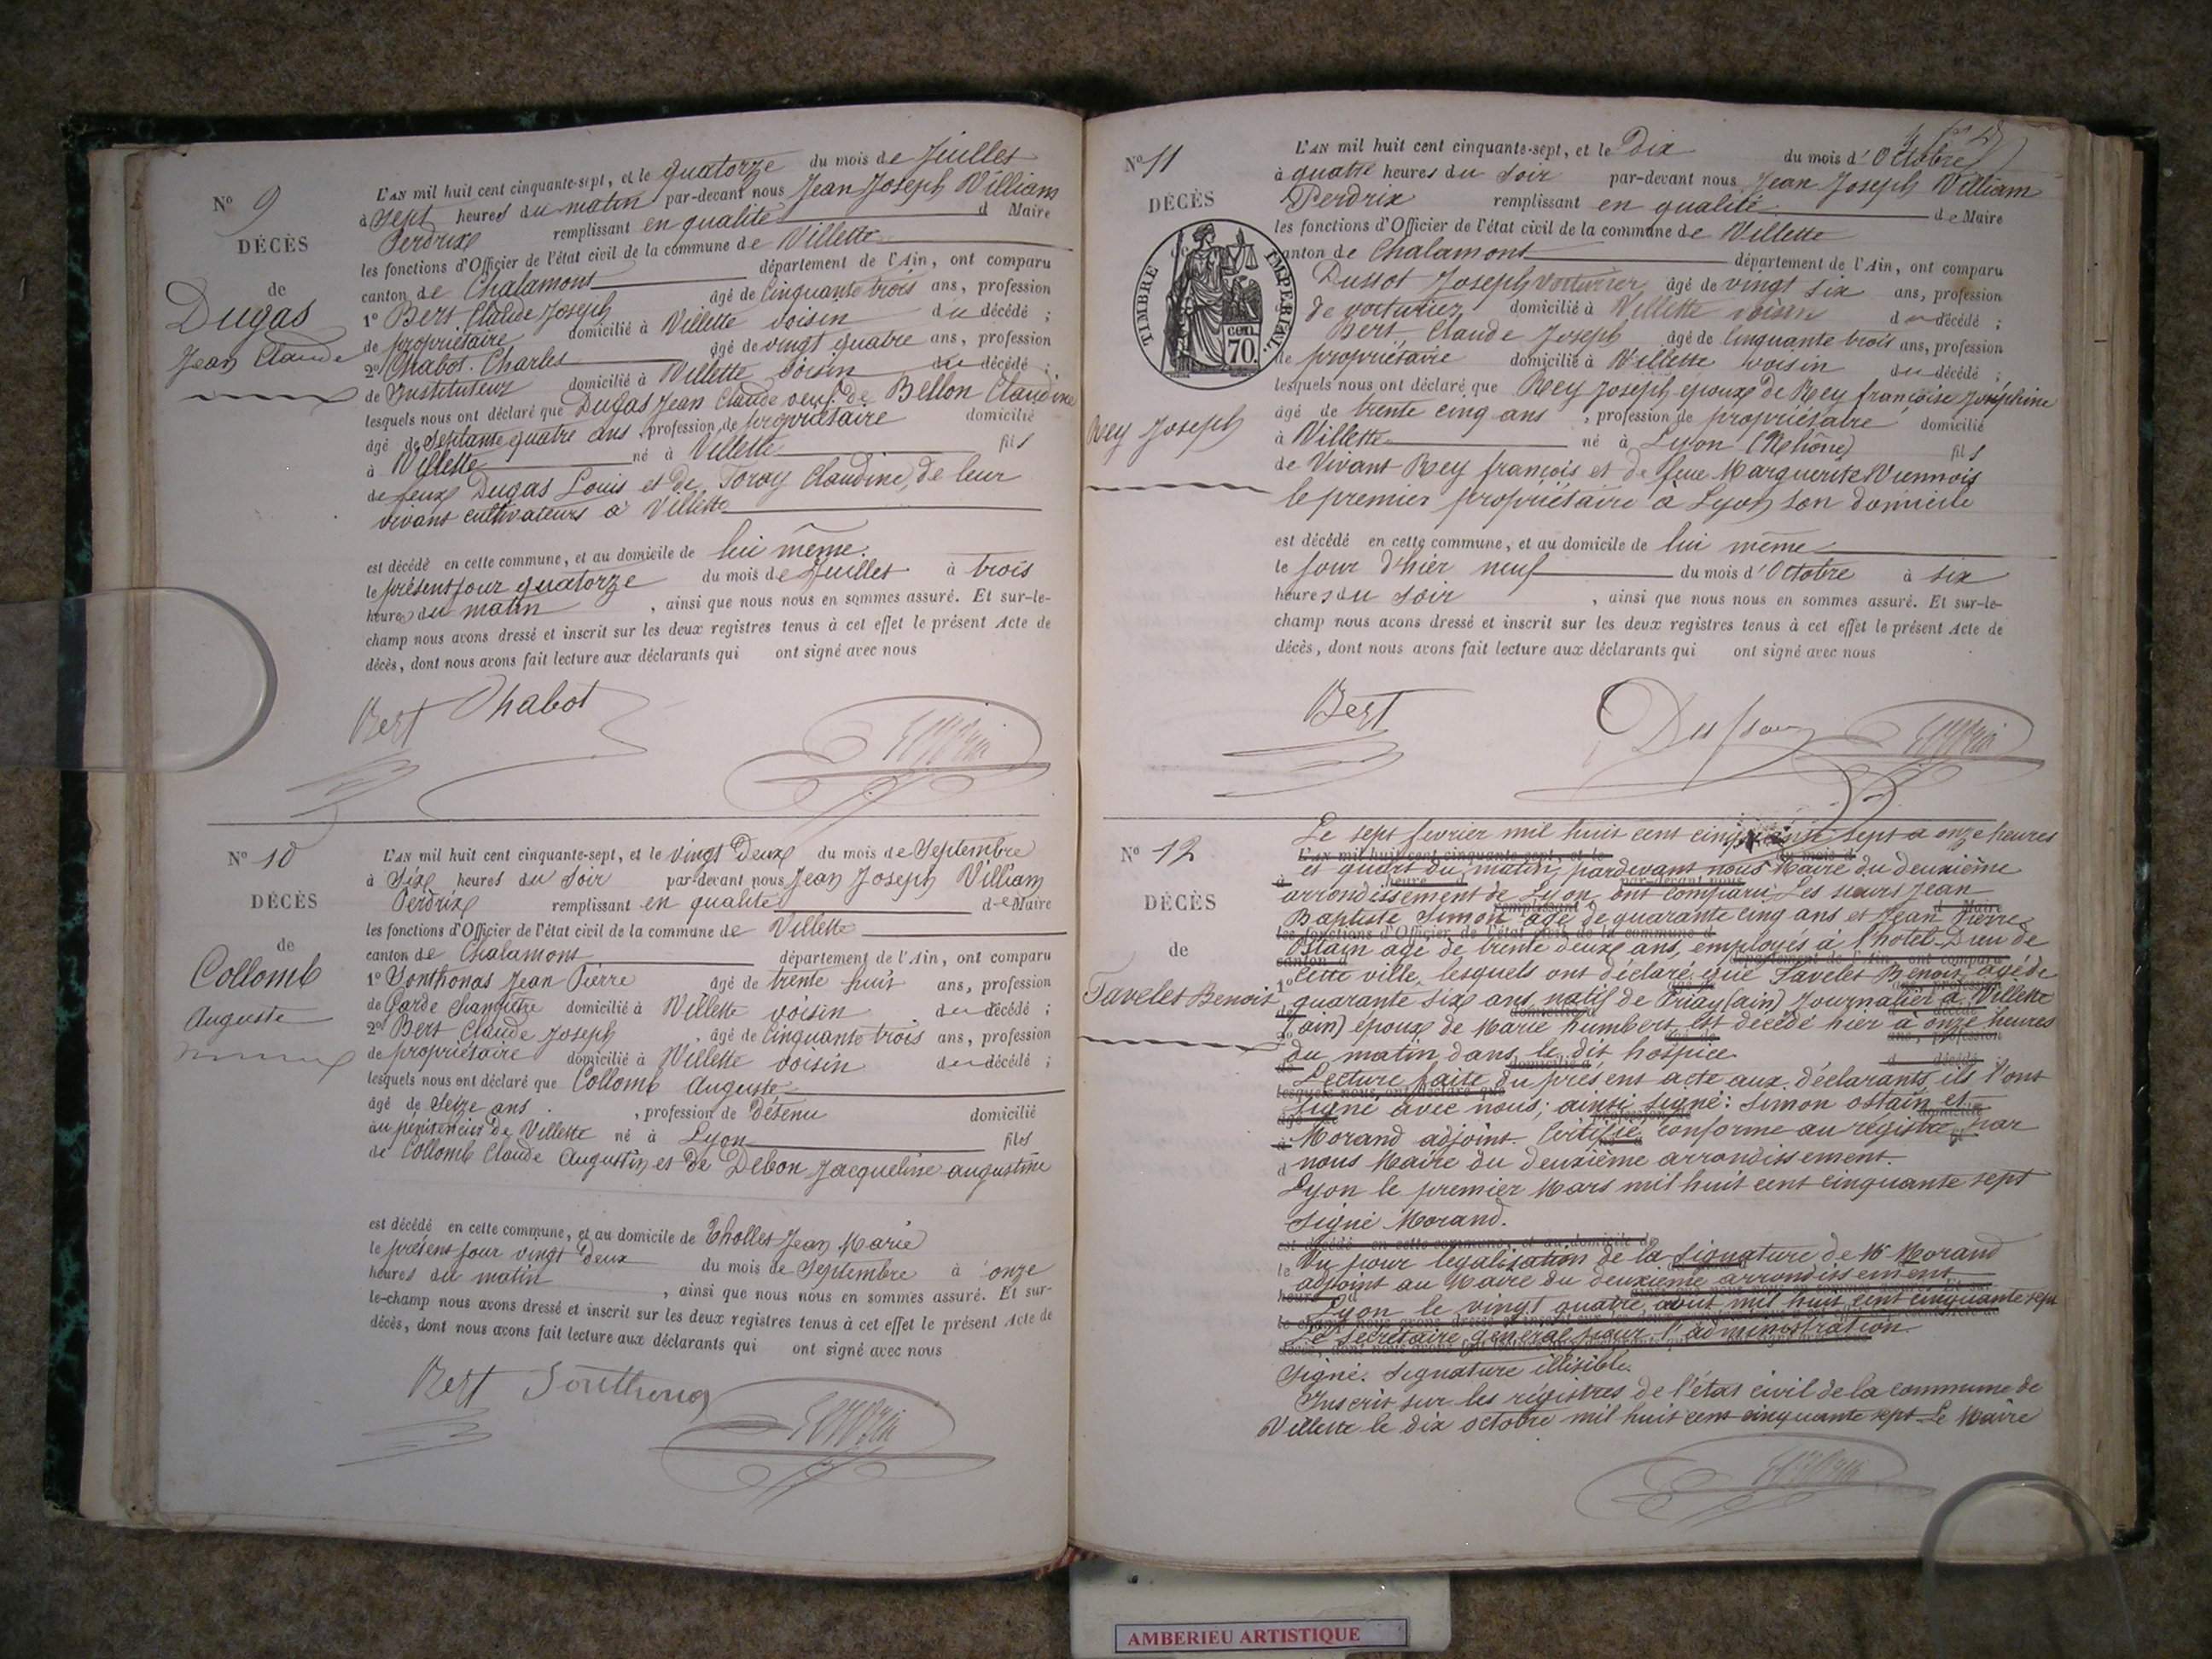 N° 9
DÉCÈS
de
Dugas
Jean Claude
L'AN mil huit cent cinquante-sept, et le quatorze du mois de Juillet
à sept heures du matin par-devant nous Jean Joseph William
Perdrix remplissant en qualité d Maire
les fonctions d'Officier de l'état civil de la commune de Villette
canton de Chalamont département de l'Ain, ont comparu
1° Bert Claude Joseph âgé de Cinquante trois ans, profession
de propriétaire domicilié à Villette voisin du décédé ;
2° Chabot Charles âgé de vingt quatre ans, profession
de Instituteur domicilié à Villette voisin du décédé ;
lesquels nous ont déclaré que Dugas Jean Claude veuf de Bellon Claudine
âgé de Septante quatre ans, profession de propriétaire domicilié
à Villette né à Villette fils
de feux Dugas Louis et de Toray Claudine, de leur
vivant cultivateurs à Villette
est décédé en cette commune, et au domicile de lui même.
le présent jour quatorze du mois de Juillet à trois
heures du matin , ainsi que nous nous en sommes assuré. Et sur-le-
champ nous avons dressé et inscrit sur les deux registres tenus à cet effet le présent Acte de
décès, dont nous avons fait lecture aux déclarants qui ont signé avec nous
Bert Chabot
N° 10
DÉCÈS
de
Collomb
Auguste
L'AN mil huit cent cinquante-sept, et le vingt Deux du mois de Septembre
à Six heures du Soir par-devant nous Jean Joseph William
Perdrix remplissant en qualité de Maire
les fonctions d'Officier de l'état civil de la commune de Villette
canton de Chalamont département de l'Ain, ont comparu
1° Sonthonas Jean Pierre âgé de trente huit ans, profession
de Garde champêtre domicilié à Villette voisin du décédé ;
2° Bert Claude Joseph âgé de Cinquante trois ans, profession
de propriétaire domicilié à Villette voisin du décédé ;
lesquels nous ont déclaré que Collomb Auguste
âgé de Seize ans , profession de Détenu domicilié
au pénitencier de Villette né à Lyon fils
de Collomb Claude Augustin et de Debon Jacqueline augustine
est décédé en cette commune, et au domicile de Tholles Jean Marie
le présent jour vingt Deux du mois de Septembre à onze
heures du matin , ainsi que nous nous en sommes assuré. Et sur-
le-champ nous avons dressé et inscrit sur les deux registres tenus à cet effet le présent Acte de
décès, dont nous avons fait lecture aux déclarants qui ont signé avec nous
Bert Sonthonas
N° 11
DÉCÈS
de
TIMBRE IMPERIAL.
cen. 70.
Rey Joseph
L'AN mil huit cent cinquante-sept, et le Dix du mois d'Octobre
à quatre heures du Soir par-devant nous Jean Joseph William
Perdrix remplissant en qualité de Maire
les fonctions d'Officier de l'état civil de la commune de Villette
canton de Chalamont département de l'Ain, ont comparu
Dussot Joseph voiturier âgé de vingt six ans, profession
de voiturier domicilié à Villette voisin du décédé ;
Bert Claude Joseph âgé de Cinquante trois ans, profession
de propriétaire domicilié à Villette voisin du décédé ;
lesquels nous ont déclaré que Rey Joseph époux de Rey françoise Joséphine
âgé de trente cinq ans , profession de propriétaire domicilié
à Villette né à Lyon (Rhône) fils
de Vivant Rey françois et de feue Marguerite Viennois
le premier propriétaire à Lyon son domicile
est décédé en cette commune, et au domicile de lui même
le jour d'hier neuf du mois d'Octobre à six
heures du Soir , ainsi que nous nous en sommes assuré. Et sur-le-
champ nous avons dressé et inscrit sur les deux registres tenus à cet effet le présent Acte de
décès, dont nous avons fait lecture aux déclarants qui ont signé avec nous
Bert
N° 12
DÉCÈS
de
Favelet Benoit
Le sept fevrier mil huit cent cinquante sept à onze heures
et quart du matin, pardevant nous Maire du deuxième
arrondissement de Lyon ont comparu: Les sieurs Jean
Baptiste Simon agé de quarante cinq ans et Jean Pierre
Ostain agé de trente deux ans, employés à l'hotel-Dieu de
cette ville, lesquels ont déclaré que Favelet Benoit, agé de
quarante six ans natif de Priay (ain) Journalier à Villette
(ain) époux de Marie humbert est décédé hier à onze heures
du matin dans le dit hospice
Lecture faite du présent acte aux déclarants, ils l'ont
signé avec nous; ainsi signé: Simon ostain et
Morand adjoint. Certifié conforme au registre par
nous Maire du deuxième arrondissement.
Lyon le premier Mars mil huit cent cinquante sept
Signé Morand.
Vu pour legalisation de la signature de Mr Morand
adjoint au Maire du deuxième arrondissement
Lyon le vingt quatre aout mil huit cent cinquante sept
Le Secrétaire général pour l'administration.
Signé. Signature illisible.
Inscrit sur les régistres de l'état civil de la commune de
Villette le dix octobre mil huit cent cinquante sept Le Maire
AMBERIEU ARTISTIQUE